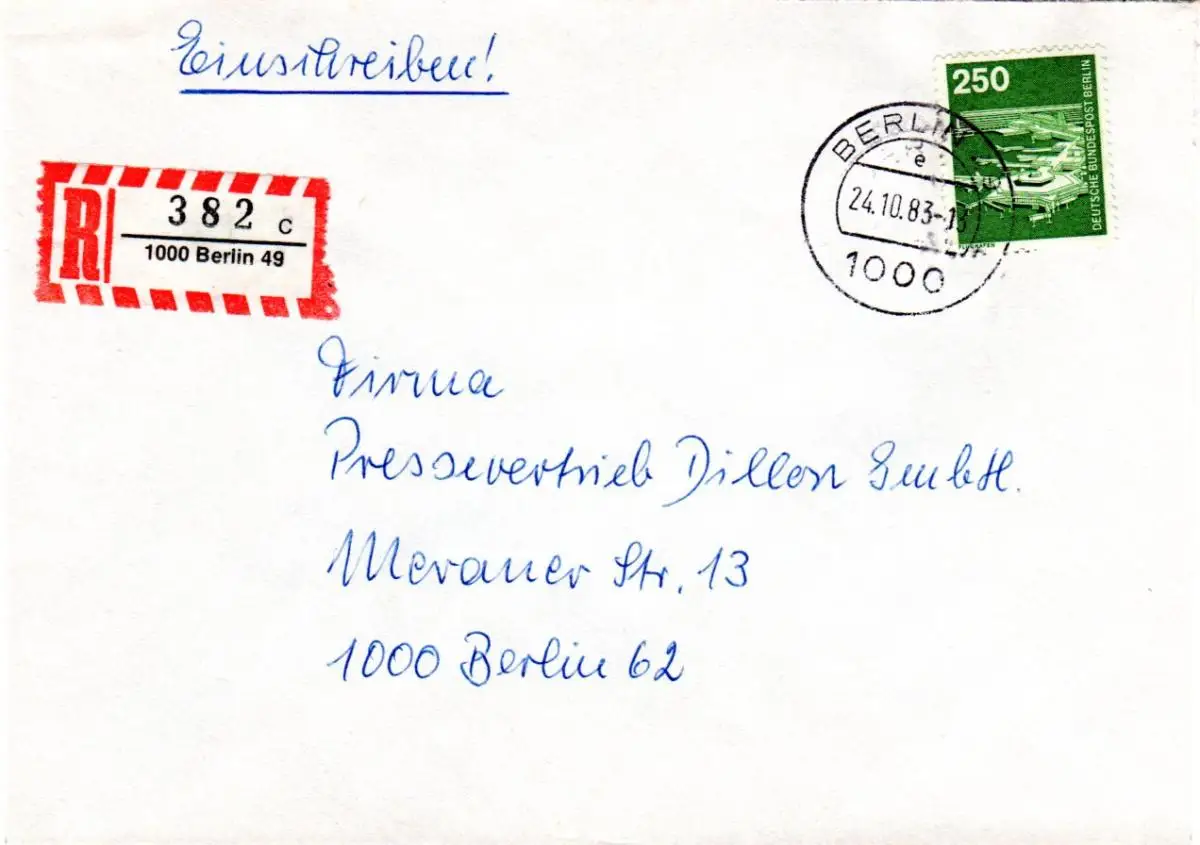 Einschreiben!
250
DEUTSCHE BUNDESPOST BERLIN
FLUGHAFEN
BERLIN
e
24.10.83
1000
R
382 c
1000 Berlin 49
Firma
Pressevertrieb Dillon GmbH.
Meraner Str. 13
1000 Berlin 62